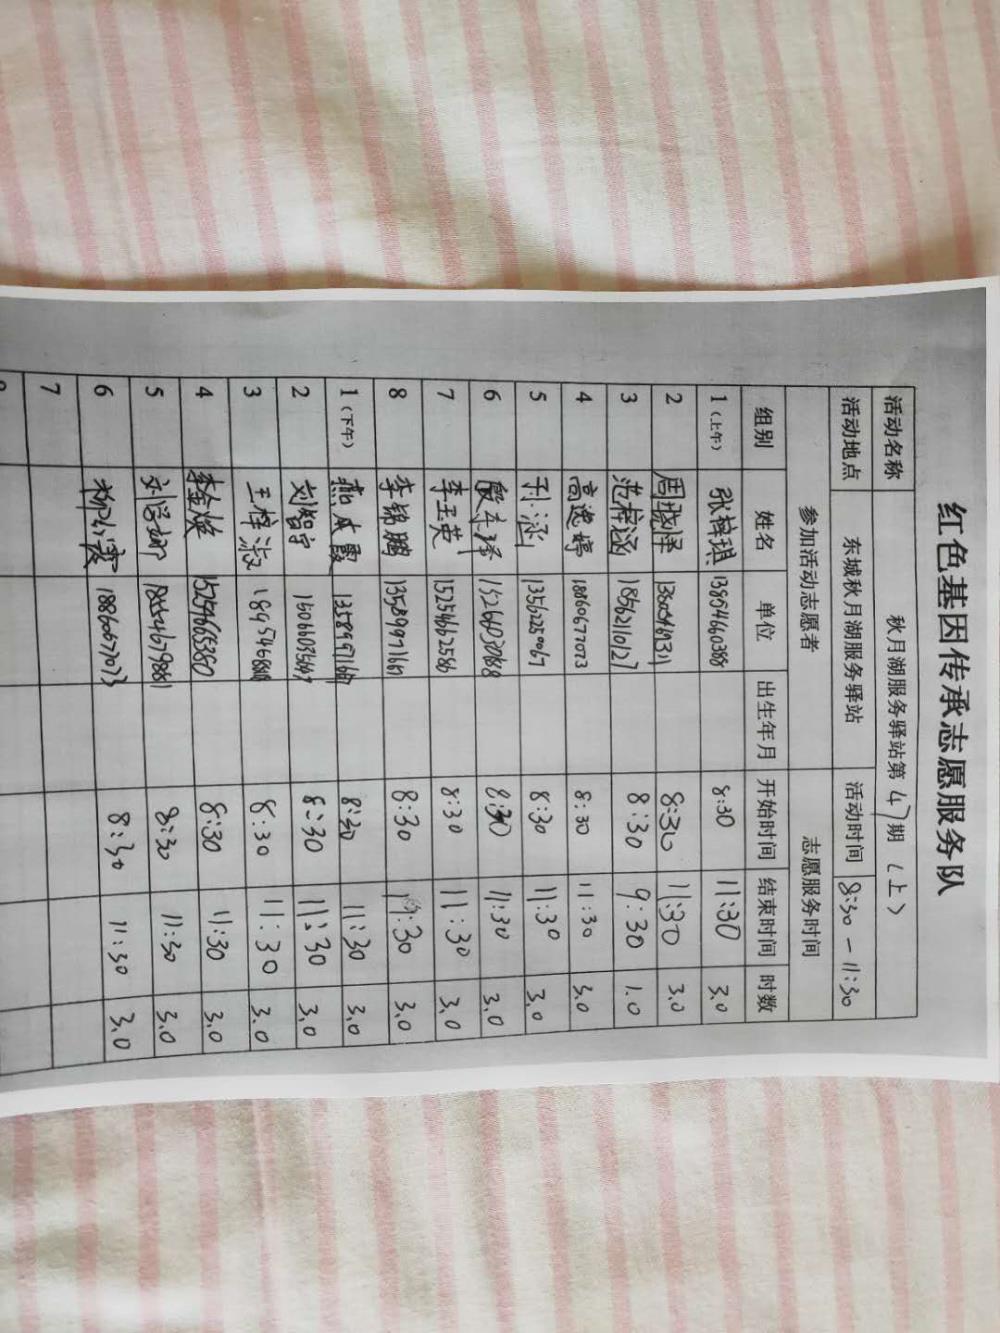 红色基因传承志愿服务队
活动名称 秋月湖服务驿站第47期(上)
活动地点 东城秋月湖服务驿站 活动时间 8:30-11:30
参加活动志愿者 志愿服务时间
组别 姓名 单位 出生年月 开始时间 结束时间 时数
1(上午) 张梓琪 13864660388 8:30 11:30 3.0
2 8:30 11:30 3.0
3 范梓涵 18562110127 8:30 9:30 1.0
4 高逸婷 18860677073 8:30 11:30 3.0
5 13562250067 8:30 11:30 3.0
6 8:30 11:30 3.0
7 李玉英 15254662580 8:30 11:30 3.0
8 李锦鹏 13589971660 8:30 11:30 3.0
1(下午) 8:30 11:30 3.0
2 刘智宁 8:30 11:30 3.0
3 王梓淑 8:30 11:30 3.0
4 李金焕 8:30 11:30 3.0
5 8:30 11:30 3.0
6 8:30 11:30 3.0
7